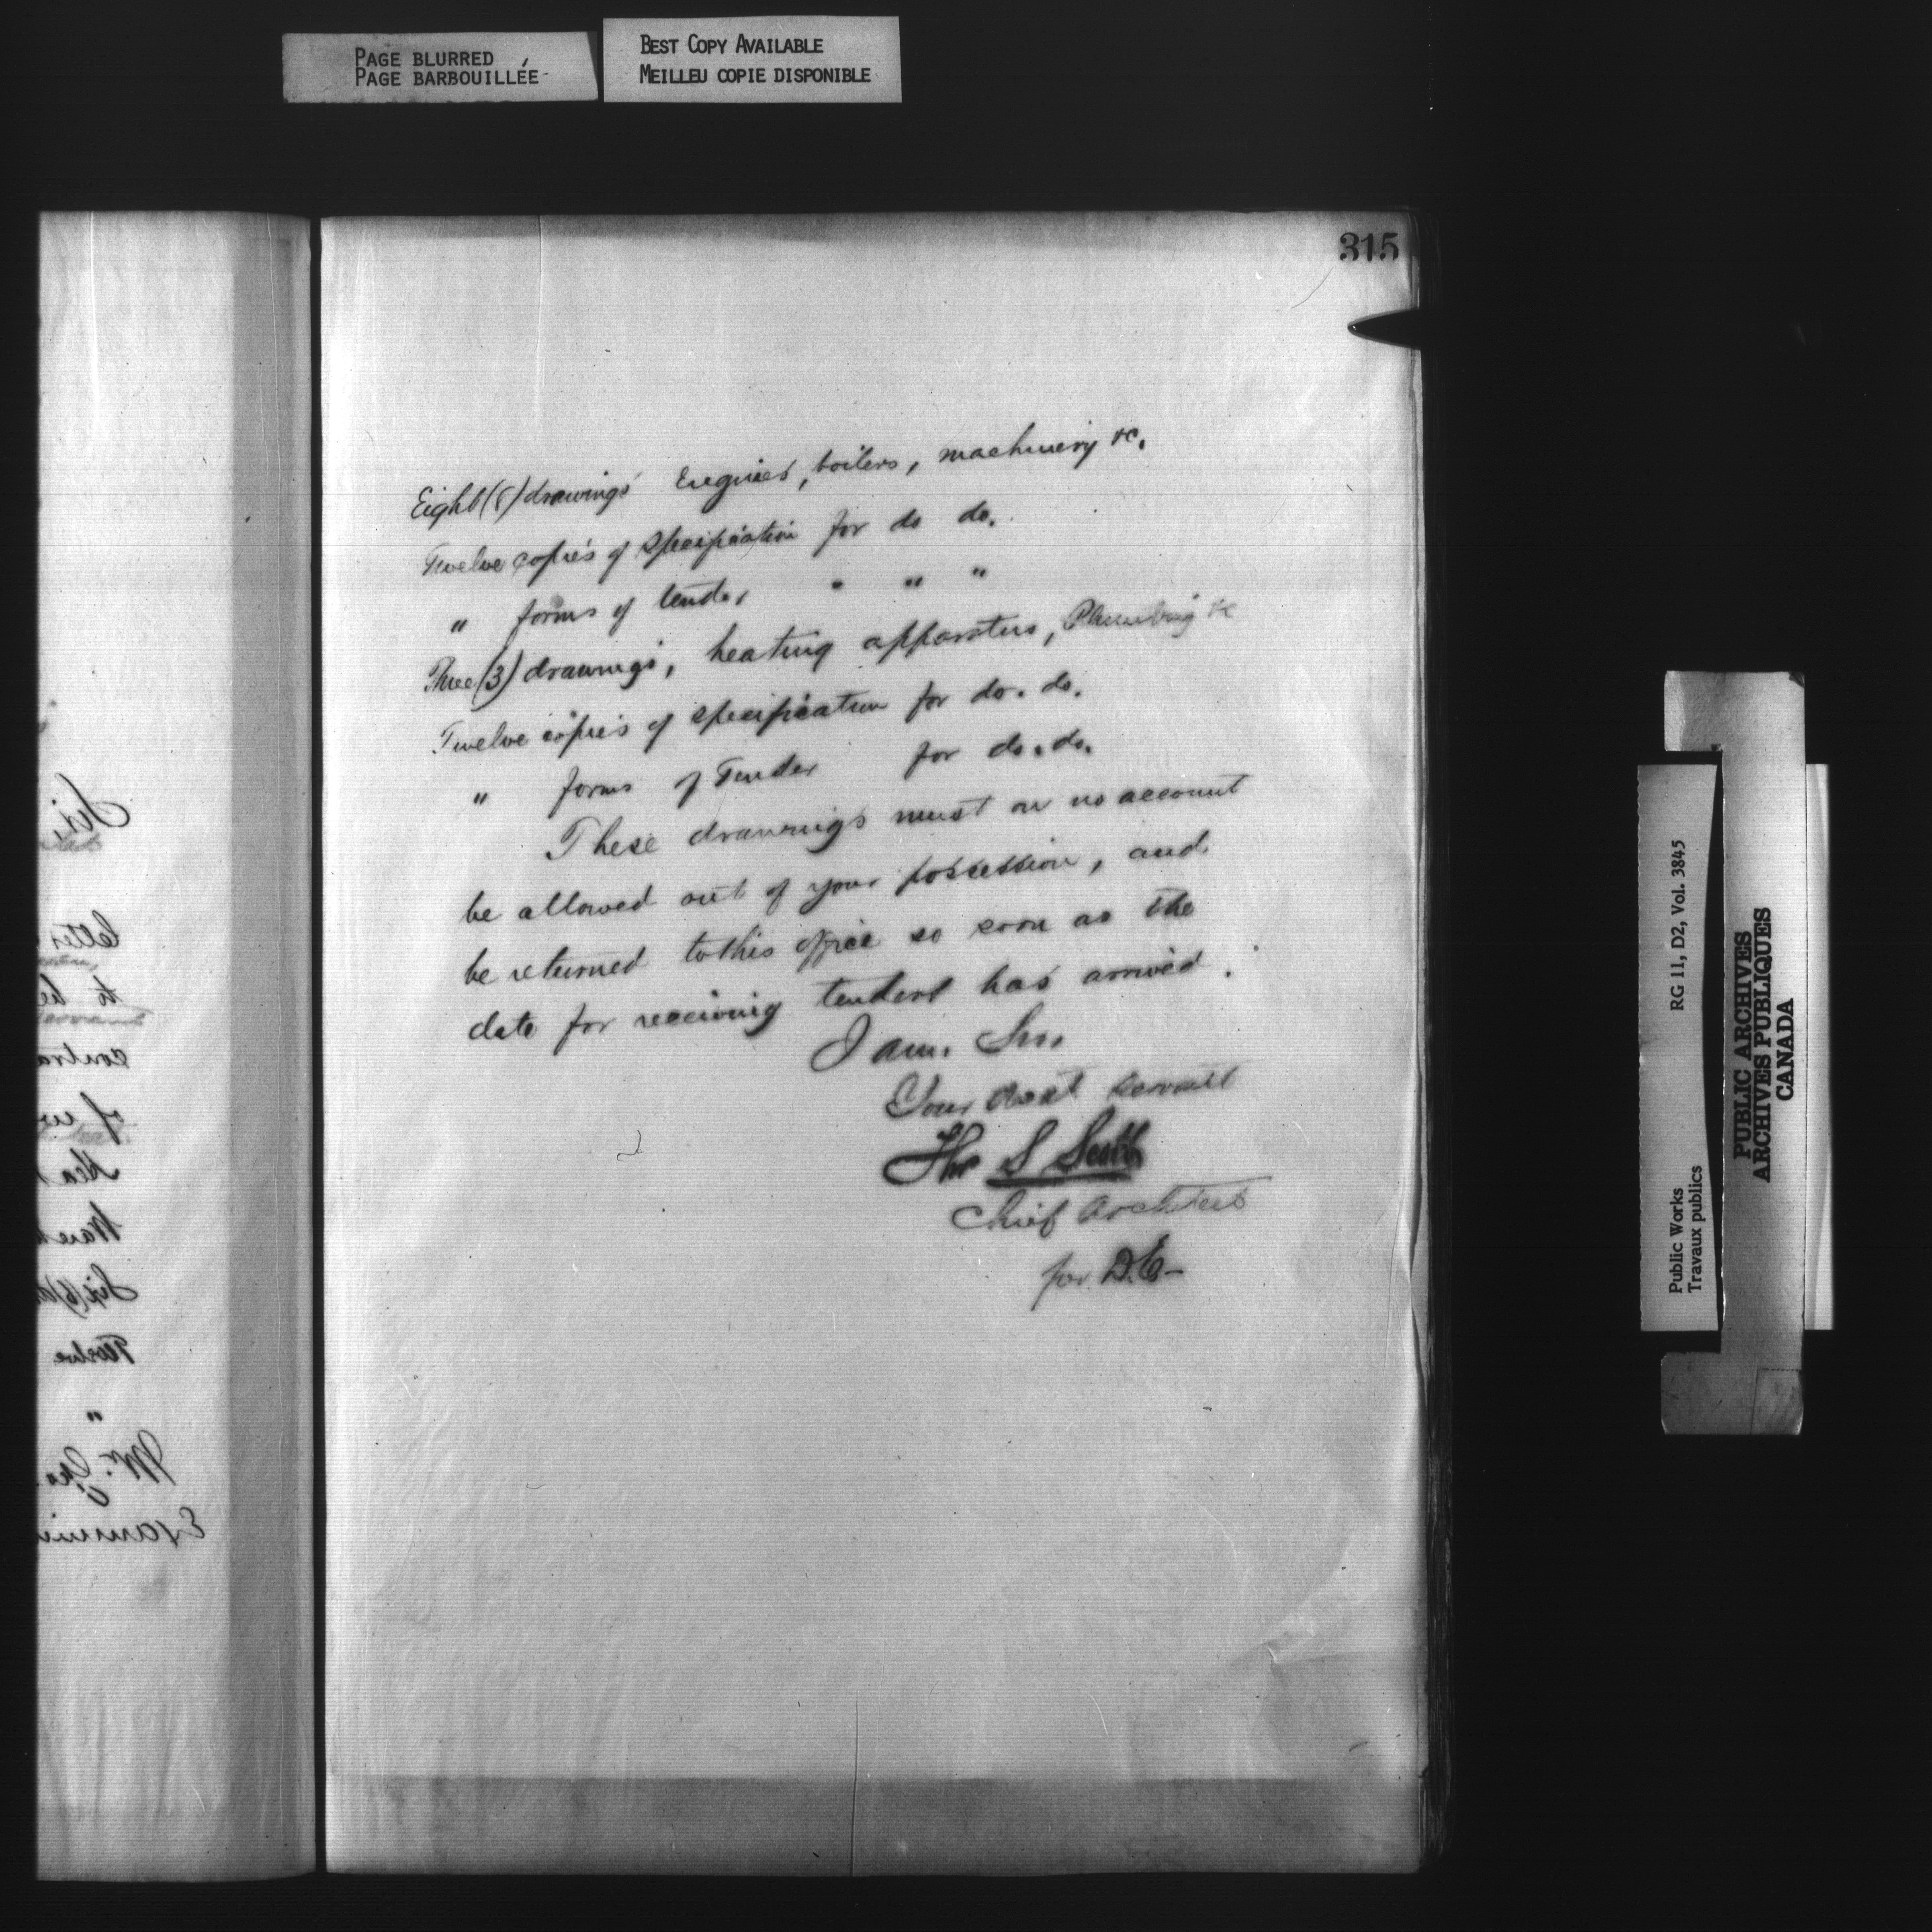 PAGE BLURRED
PAGE BARBOUILLÉE
BEST COPY AVAILABLE
MEILLEU COPIE DISPONIBLE
315
Eight (8) drawings Engines, boilers, machinery &c.
Twelve copies of Specification for do do.
" forms of tender " " "
Three (3) drawings, heating apparatus, Plumbing &c
Twelve copies of specification for do. do.
" forms of Tender for do. do.
These drawings must on no account
be allowed out of your possession, and
be returned to this office so soon as the
date for receiving tenders has arrived.
I am. Sir.
Your obedt servant
Thos S Scott
Chief Architect
per D.E-
Public Works
Travaux publics
RG 11, D2, Vol. 3845
PUBLIC ARCHIVES
ARCHIVES PUBLIQUES
CANADA